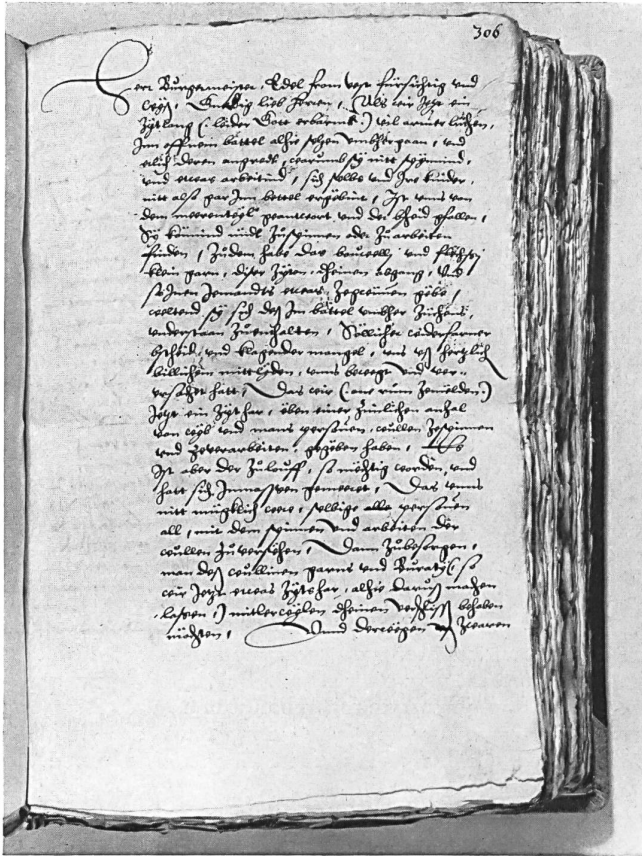 306
Herr Burgermeister, Edel from vest fürsichtig und
wyß, Gnedig lieb Herren, Als wir jetz ein
Zytlang (: leider Gott erbarms :) vil armer lüthen,
Im offnem bättel alhie sehen umbher gaan, und
etlich deren angeredt, warumb sy nitt spinnind,
und etwas arbeitind, sich selbs und Ire kinder,
nitt also gar Inn bettel ergäbint, Ist uns von
dem meerentheyl geantwort und der bscheid gfallen,
Sy könnind nüdt Zuspinnen oder Zuarbeiten
finden, Zudem habe der bouwelly und
klein garn, diser Zyten dheinen abgang, Wo
Inen Jemandts etwas Zegwünnen gäbe,
weltend sy sich deß Im bättel umbher Züchens,
understaan Zuenthalten, Söllicher widerfarner
bscheid, und klagender mangel, uns uß hertzlich
billichem mittlyden, unns bewegt und ver-
ursachet hatt, Das wir (: one rum Zemelden :)
Jetzt ein Zythar, eben einer Zimlichen anzal
von wyb und mans persunen, wullen Zespinnen
und Zeverarbeiten, gegöben haben, Es
Ist aber der Zulouff, so mächtig worden, und
hatt sich Inmassen gemeeret, Das unns
nitt müglich were, sölbige alle persunen
all, mit dem spinnen und arbeiten der
wullen Zuversehen, Dann Zubesorgen,
man deß wullinen garns und Buratz (: so
wir Jetzt etwas Zythar, alhie daruß machen
lassen :) mitlerwylen dheinen verschliß behaben
möchten, Unnd derwägen Zwaren